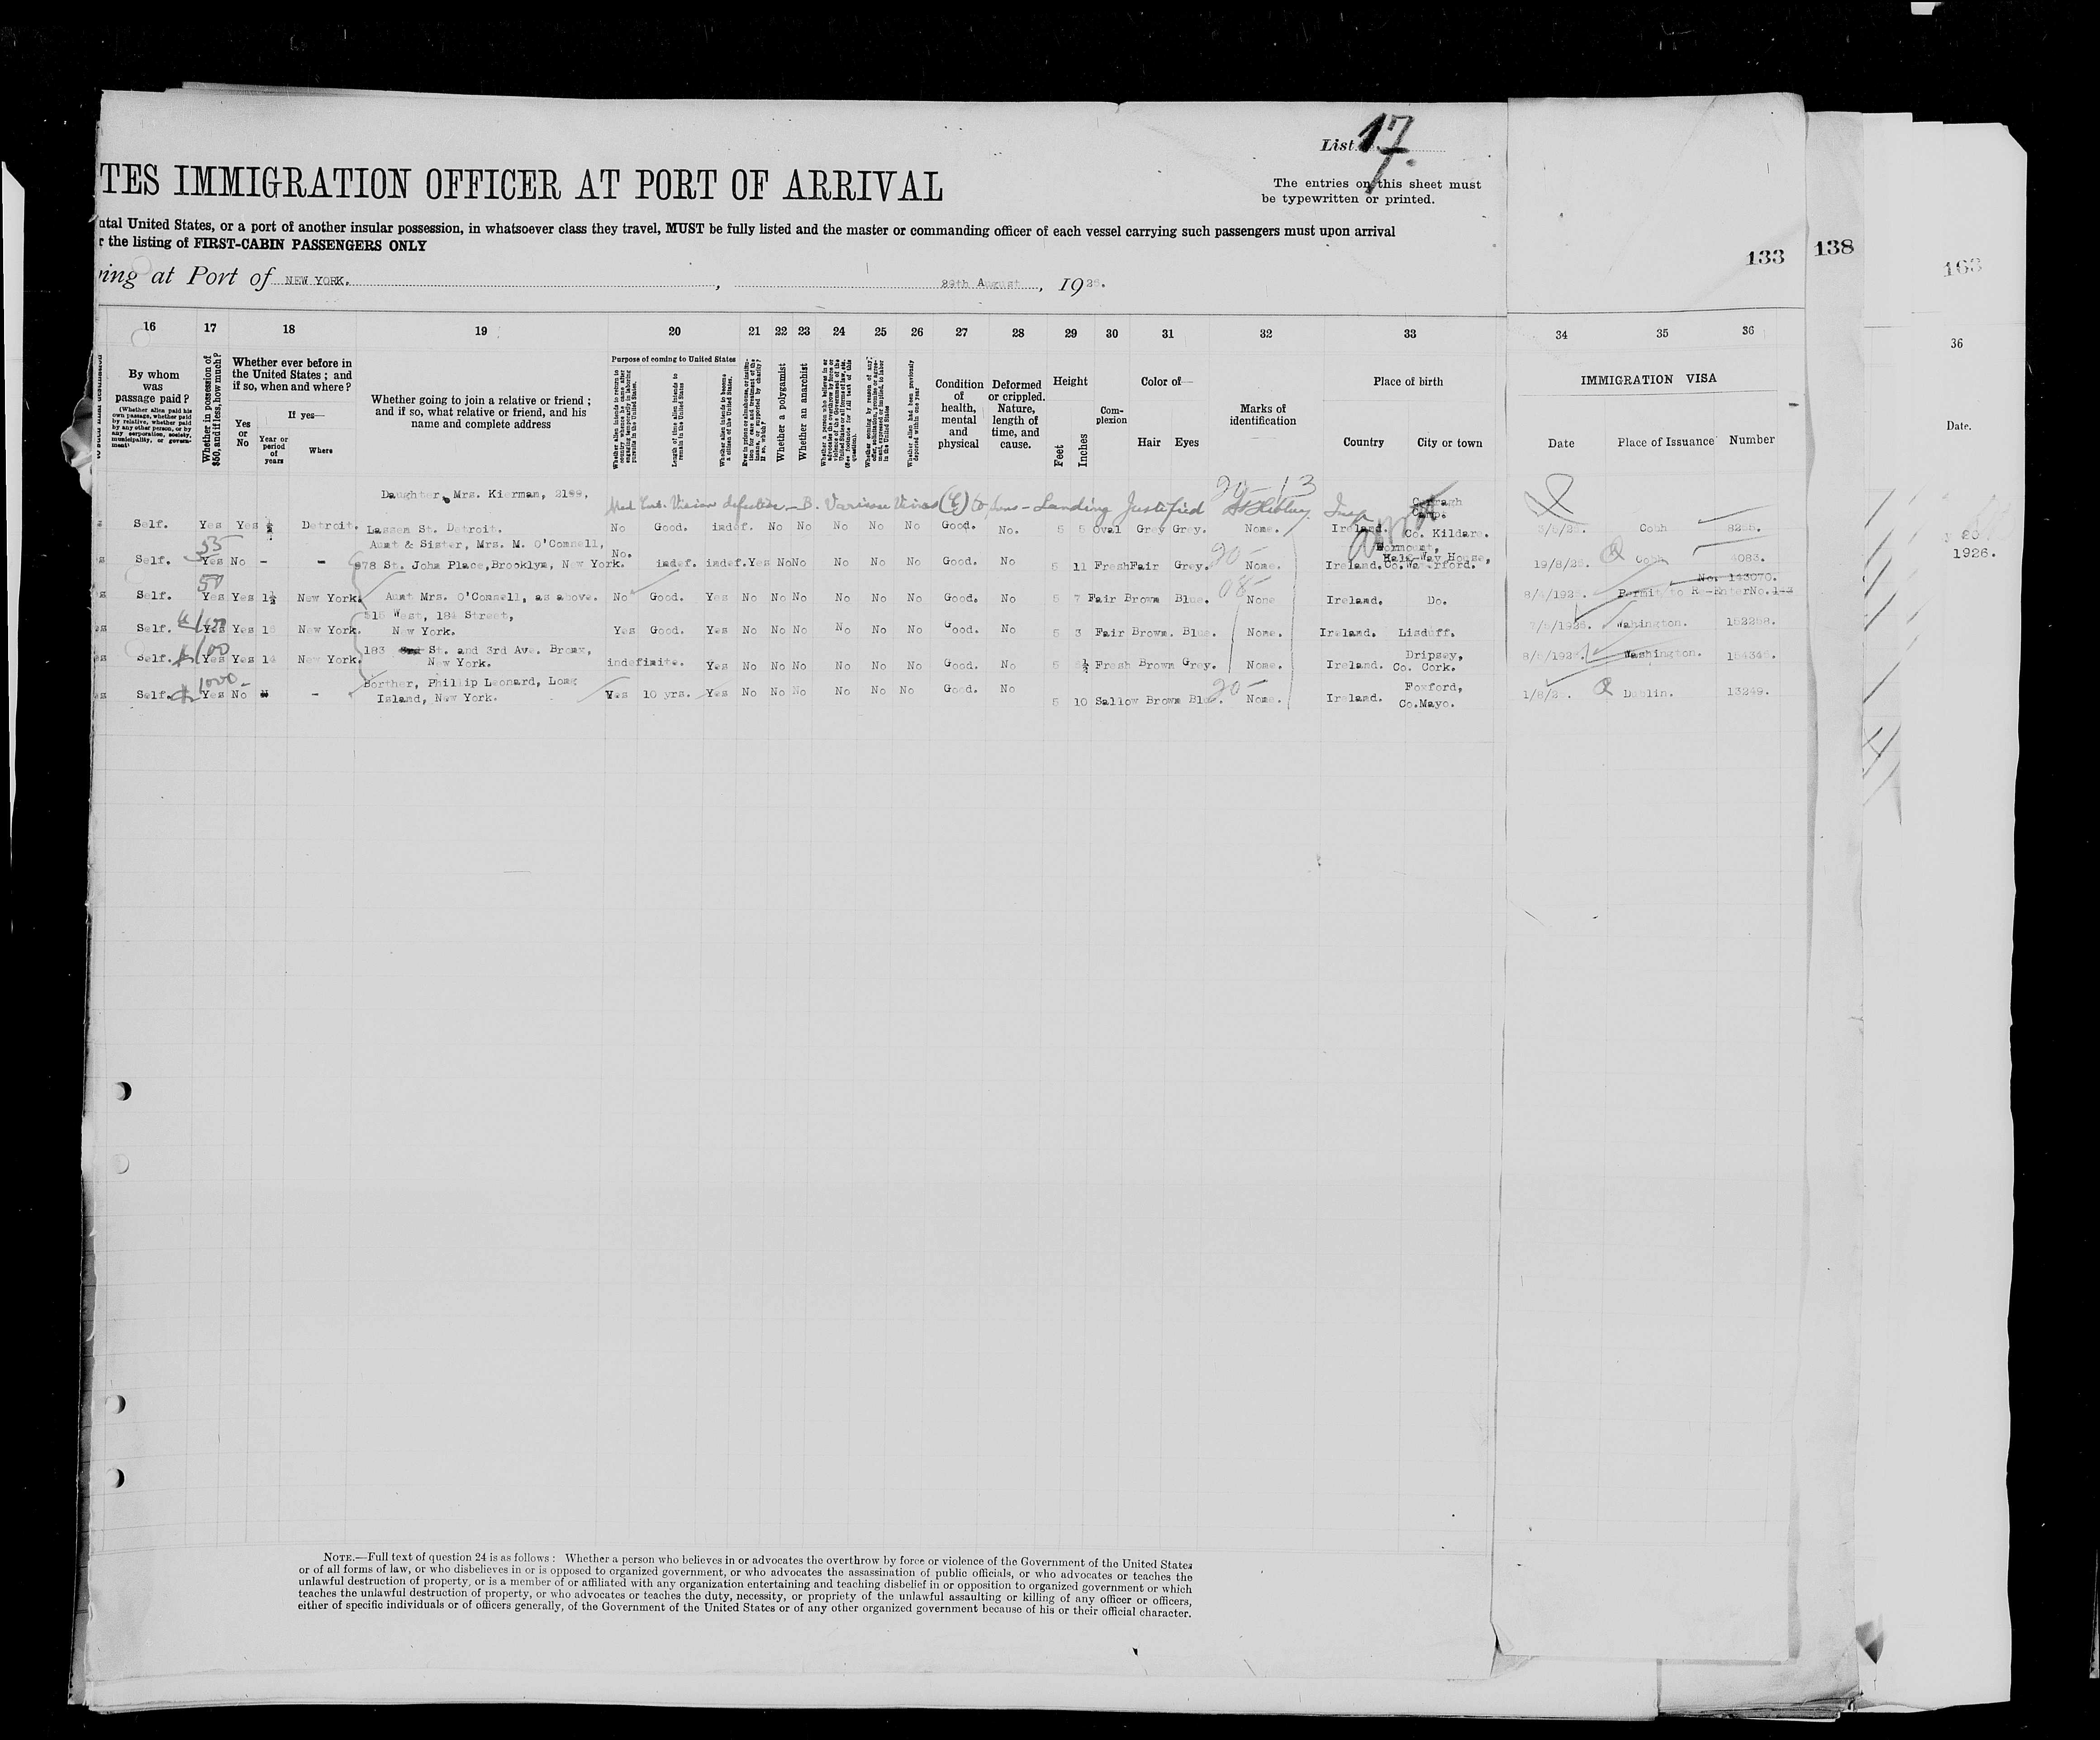 List 17
TES IMMIGRATION OFFICER AT PORT OF ARRIVAL
The entries on this sheet must
be typewritten or printed.
ntal United States, or a port of another insular possession, in whatsoever class they travel, MUST be fully listed and the master or commanding officer of each vessel carrying such passengers must upon arrival
r the listing of FIRST-CABIN PASSENGERS ONLY
133
138
163
ring at Port of NEW YORK. , 29th August , 19
16 17 18 19 20 21 22 23 24 25 26 27 28 29 30 31 32 33 34 35 36
36
By whom was passage paid?
(Whether alien paid his own passage, whether paid by relative, whether paid by any other person, or by any corporation, society, municipality, or government)
Whether in possession of $50, and if less, how much?
Whether ever before in the United States; and if so, when and where?
Yes or No
If yes—
Year or period of years
Where
Whether going to join a relative or friend; and if so, what relative or friend, and his name and complete address
Purpose of coming to United States
Whether alien intends to return to country whence he came after engaging temporarily in laboring pursuits in the United States.
Length of time alien intends to remain in the United States
Whether alien intends to become a citizen of the United States.
Whether a polygamist
Whether an anarchist
Whether alien had been previously deported within one year
Condition of health, mental and physical
Deformed or crippled. Nature, length of time, and cause.
Height
Feet
Inches
Com-plexion
Color of—
Hair Eyes
Marks of identification
Place of birth
Country City or town
IMMIGRATION VISA
Date Place of Issuance Number
Date.
Daughter, Mrs. Kiernan, 2199,
Vision defective - Landing Justified
Self. Yes Yes Detroit. Lassen St. Detroit. No Good. indef. No No No No No Good. No. 5 Oval Grey Grey. None. Ireland. Co. Kildare. Cobh
Aunt & Sister, Mrs. M. O'Connell,
55
Self. Yes No - - 878 St. John Place, Brooklyn, New York. No. indef. indef. Yes No No No No No Good. No 5 11 Fresh Fair Grey. None. Ireland. Half-Way House, Co. Waterford. 19/8/26. Cobh 4083.
50
No. 143070.
Self. Yes Yes 1½ New York. Aunt Mrs. O'Connell, as above. No Good. Yes No No No No No No Good. No 5 7 Fair Brown Blue. None Ireland. Do. Permit to Re-Enter No.
515 West, 184 Street,
Self. Yes Yes New York. New York. Yes Good. Yes No No No No No No Good. No 5 3 Fair Brown. Blue. None. Ireland. Lisduff. Wahington. 152258.
100
183 St. and 3rd Ave. Bronx,
Dripsey,
Self. Yes Yes New York. New York. indefinite. Yes No No No No No No Good. No 5 Fresh Brown Grey. None. Ireland. Co. Cork. Washington.
1000
Borther, Phillip Leonard, Long
Foxford,
Self. Yes No - Island, New York. Yes 10 yrs. Yes No No No No No No Good. No 5 10 Sallow Brown Blue. None. Ireland. Co. Mayo. 1/8/26. Dublin. 13249.
1926.
NOTE.—Full text of question 24 is as follows: Whether a person who believes in or advocates the overthrow by force or violence of the Government of the United States
or of all forms of law, or who disbelieves in or is opposed to organized government, or who advocates the assassination of public officials, or who advocates or teaches the
unlawful destruction of property, or is a member of or affiliated with any organization entertaining and teaching disbelief in or opposition to organized government or which
teaches the unlawful destruction of property, or who advocates or teaches the duty, necessity, or propriety of the unlawful assaulting or killing of any officer or officers,
either of specific individuals or of officers generally, of the Government of the United States or of any other organized government because of his or their official character.